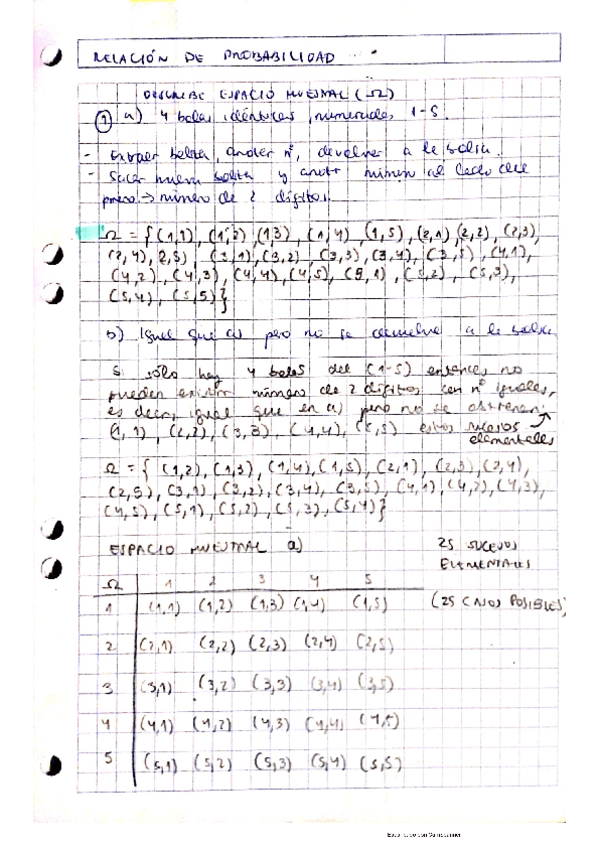 RELACIÓN DE PROBABILIDAD
DESCRIBE ESPACIO MUESTRAL (Ω)
① a) 4 bolas idénticas, numeradas, 1-5.
- Extraer bolita, anotar nº, devolver a la bolsa.
- Sacar nueva bolita y anotar número al lado del
previo → número de 2 dígitos.
Ω = { (1,1), (1,2), (1,3), (1,4), (1,5), (2,1) (2,2), (2,3)
(2,4), 2,5), (3,1), (3,2), (3,3), (3,4), (3,5), (4,1),
(4,2), (4,3), (4,4), (4,5), (5,1), (5,2), (5,3),
(5,4), (5,5) }
b) Igual que a) pero no se devuelve a la bolsa
Si sólo hay 4 bolas del (1-5) entonces no
pueden existir números de 2 dígitos con nº iguales,
es decir, igual que en a) pero no se obtienen
(1,1), (2,2), (3,3), (4,4), (5,5) estos sucesos
elementales
Ω = { (1,2), (1,3), (1,4), (1,5), (2,1), (2,3), (2,4),
(2,5), (3,1), (3,2), (3,4), (3,5), (4,1), (4,2), (4,3),
(4,5), (5,1), (5,2), (5,3), (5,4) }
ESPACIO MUESTRAL a) 25 SUCESOS
ELEMENTALES
Ω 1 2 3 4 5
1 (1,1) (1,2) (1,3) (1,4) (1,5) (25 CASOS POSIBLES)
2 (2,1) (2,2) (2,3) (2,4) (2,5)
3 (3,1) (3,2) (3,3) (3,4) (3,5)
4 (4,1) (4,2) (4,3) (4,4) (4,5)
5 (5,1) (5,2) (5,3) (5,4) (5,5)